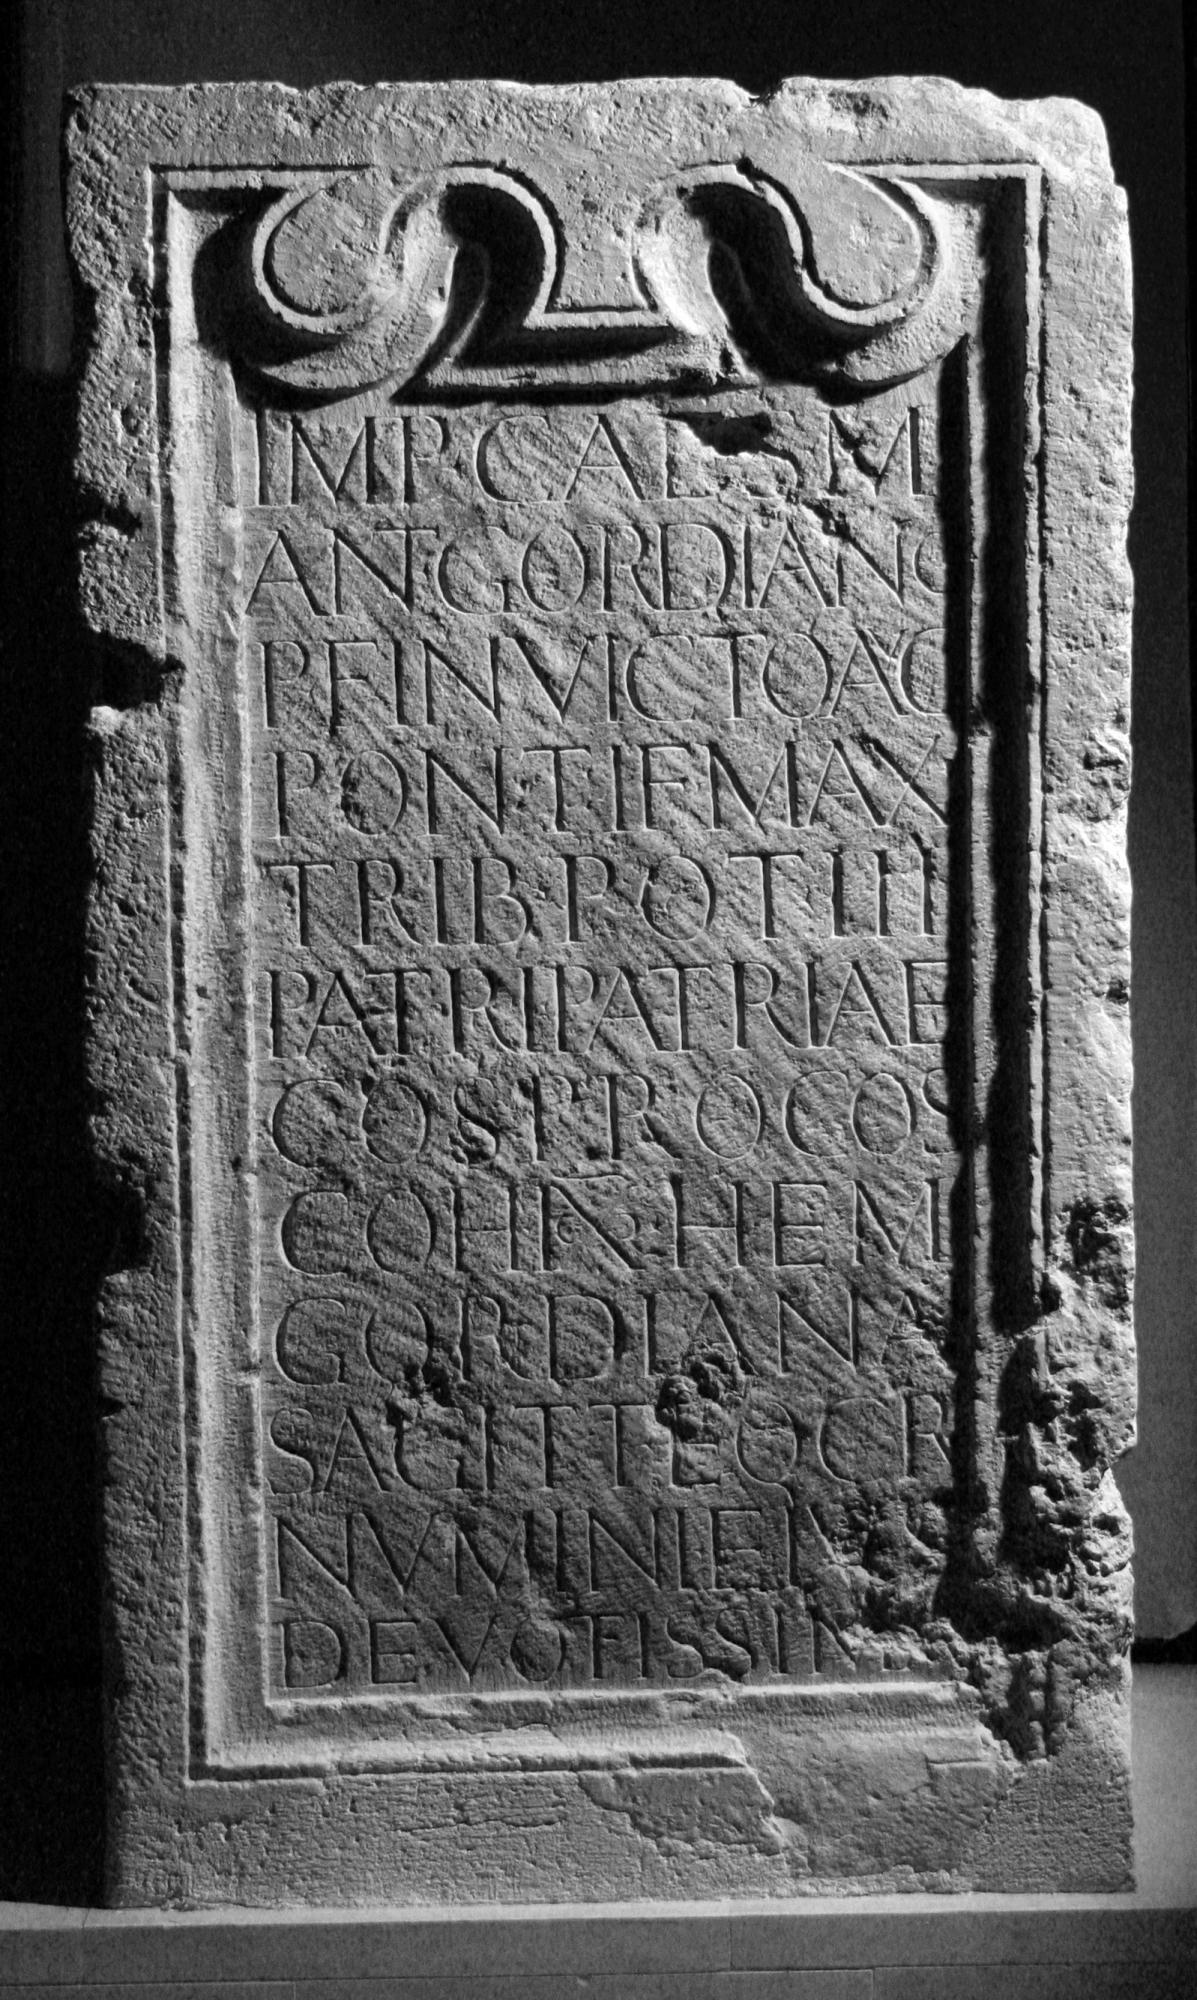 IMP CAES M
ANT GORDIANO
P F INVICTO AVG
PONTIF MAX
TRIB POT III
PATRI PATRIAE
COS PROCOS
COH ∞ HEM
GORDIANA
SAGITT EQ C R
NVMINI EIVS
DEVOTISSIM